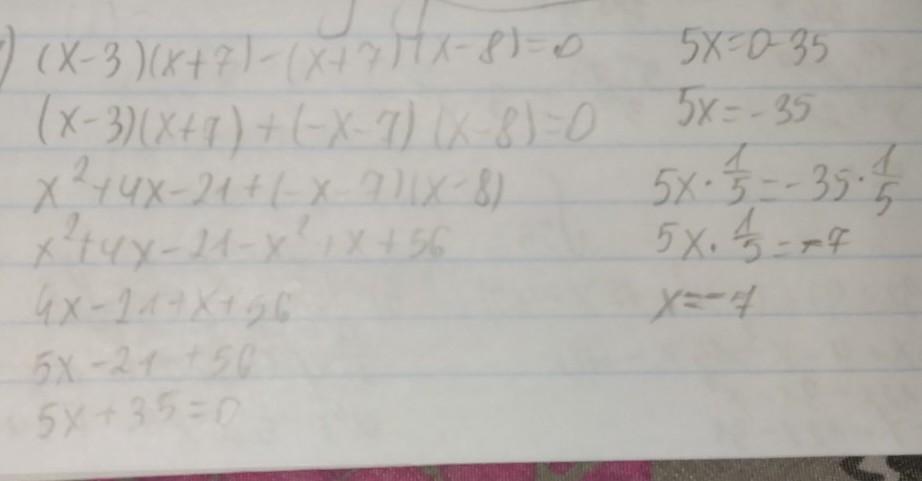 (x-3)(x+7)-(x+7)(x-8)=0
(x-3)(x+7)+(-x-7)(x-8)=0
x²+4x-21+(-x-7)(x-8)
x²+4x-21-x²+x+56
4x-21+x+56
5x-21+56
5x+35=0
5x=0-35
5x=-35
5x·1/5=-35·1/5
5x·1/5=-7
x=-7